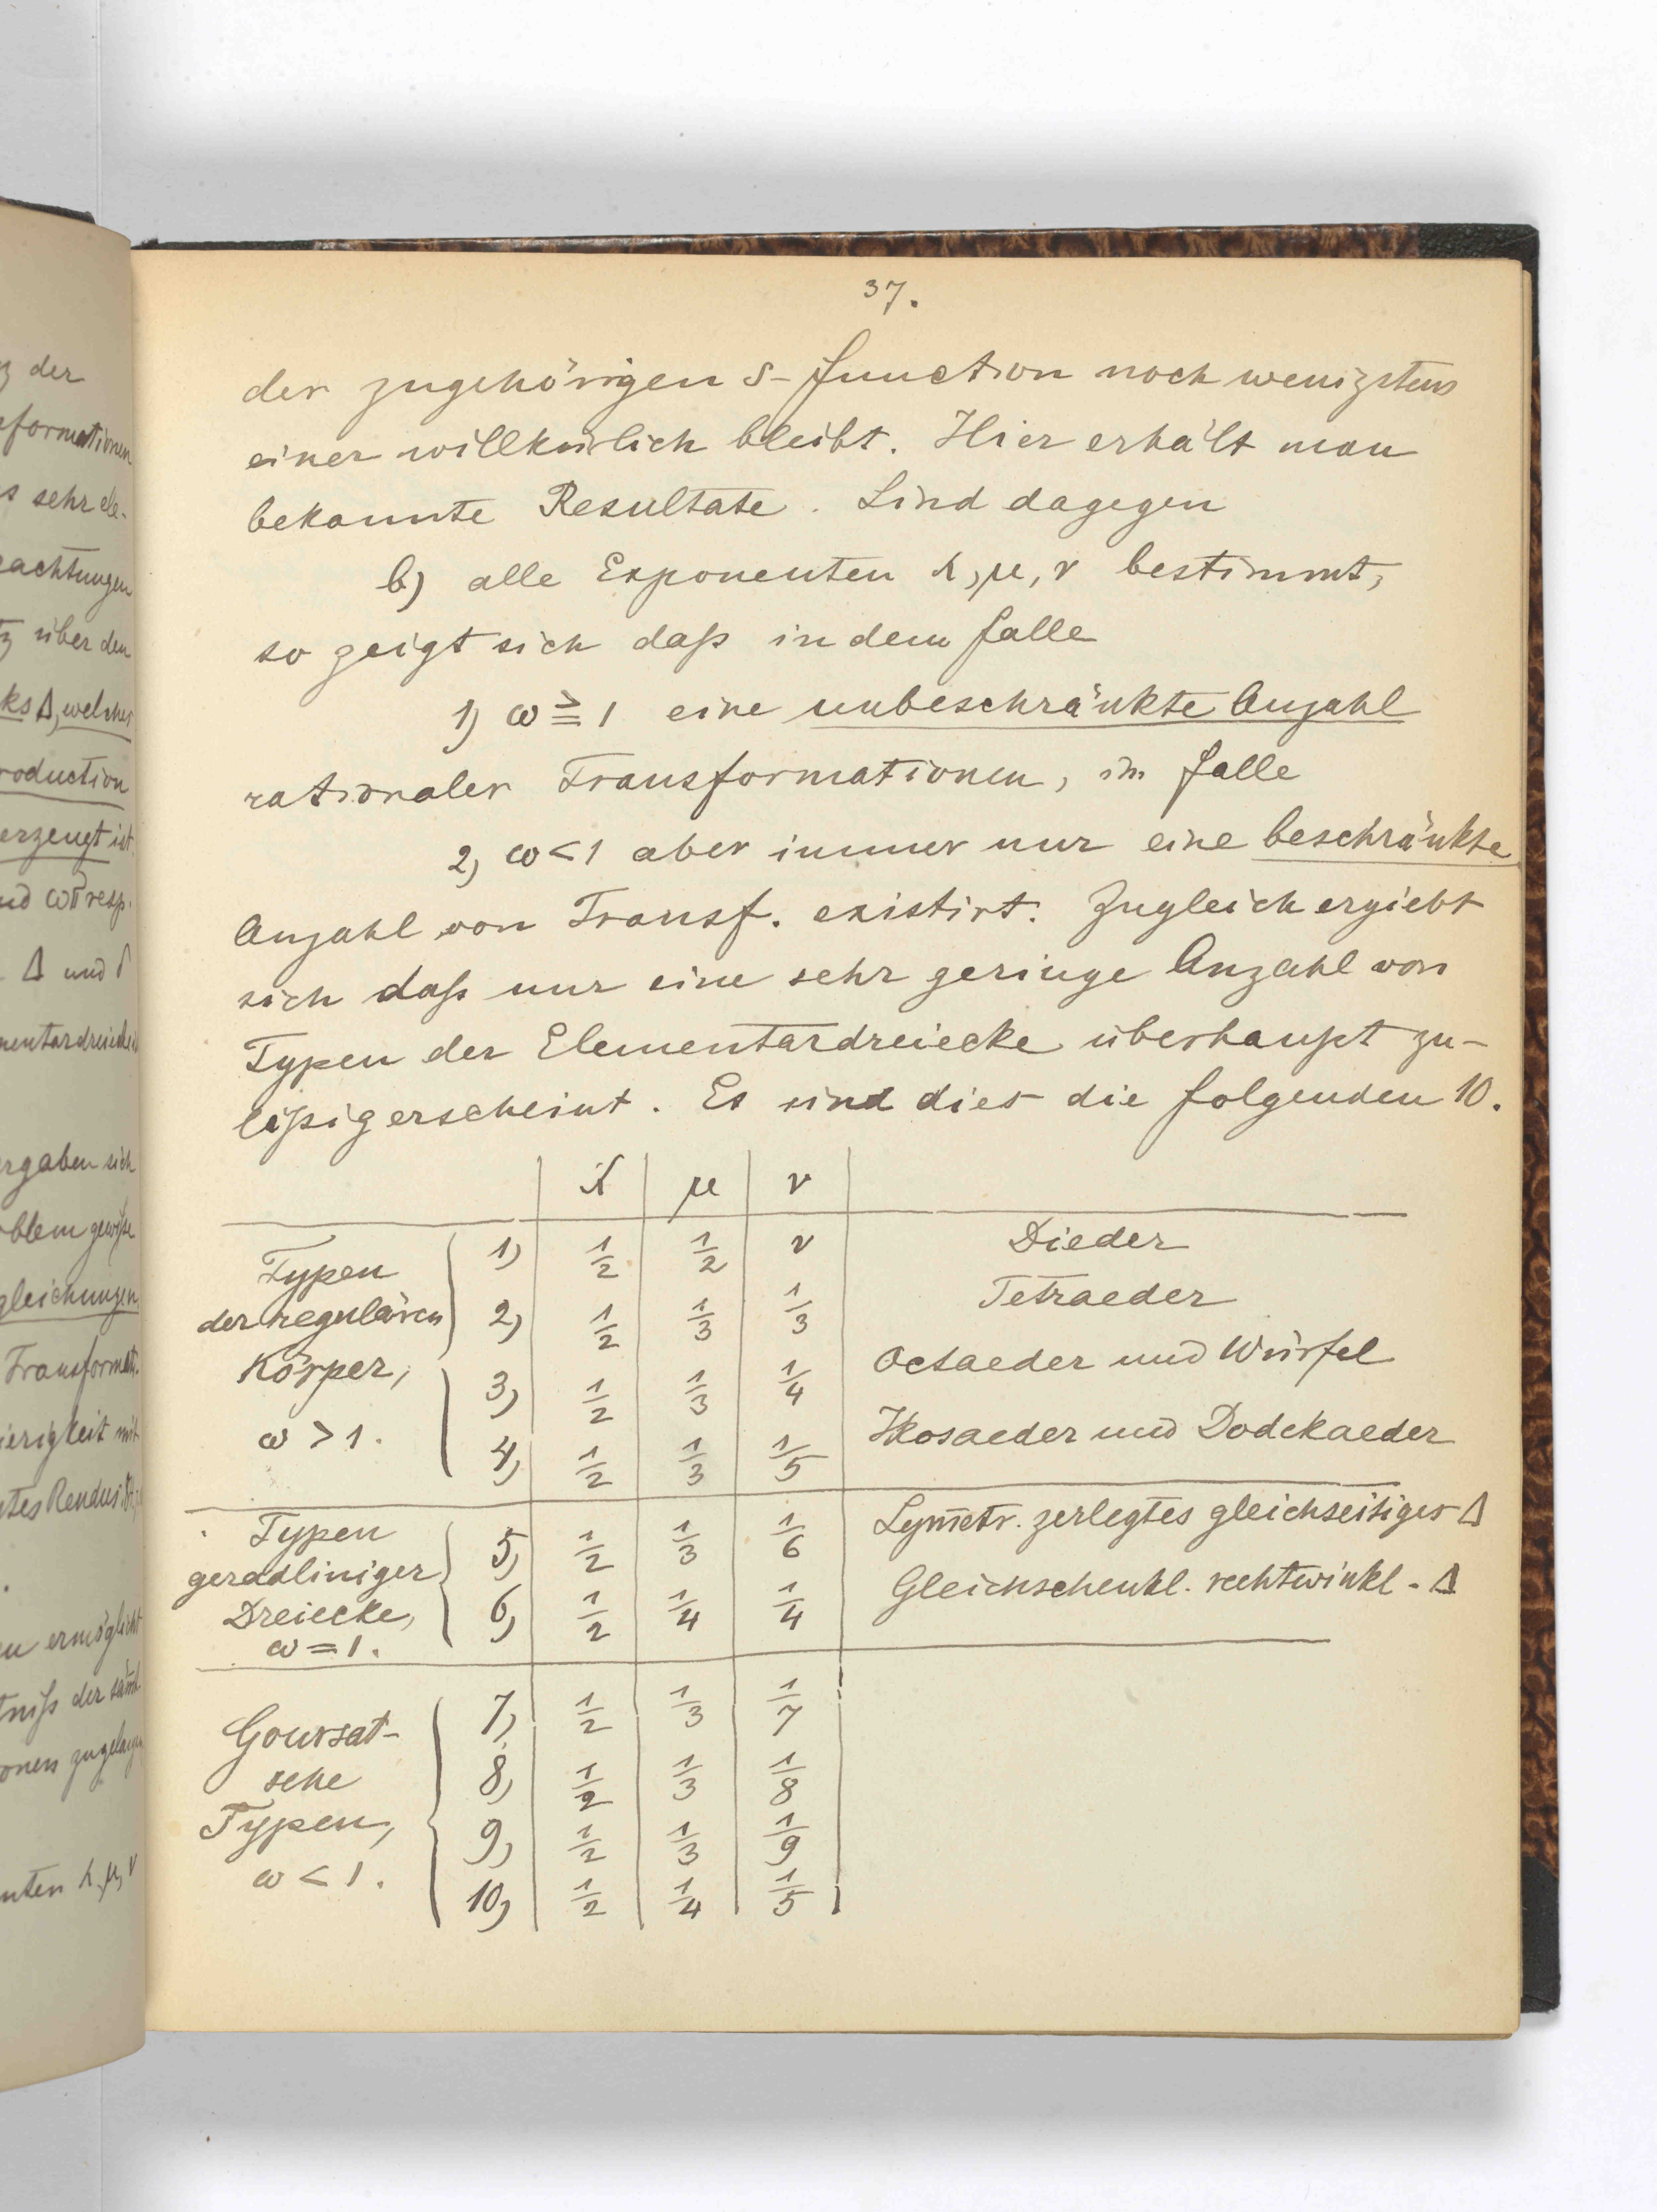 37.
der zugehörigen s-Function noch wenigstens
einer willkürlich bleibt. Hier erhält man
bekannte Resultate. Sind dagegen
b) alle Exponenten λ, μ, ν bestimmt,
so zeigt sich daß in dem Falle
1) ω ≧ 1 eine unbeschränkte Anzahl
rationaler Transformationen, im Falle
2) ω < 1 aber immer nur eine beschränkte
Anzahl von Transf. existirt. Zugleich ergiebt
sich daß nur eine sehr geringe Anzahl von
Typen der Elementardreiecke überhaupt zu-
läßig erscheint. Es sind dies die folgenden 10.
λ μ ν
Typen der regulären Körper, ω > 1.
1) 1/2 1/2 ν Dieder
2) 1/2 1/3 1/3 Tetraeder
3) 1/2 1/3 1/4 Octaeder und Würfel
4) 1/2 1/3 1/5 Ikosaeder und Dodekaeder
Typen geradliniger Dreiecke, ω = 1.
5) 1/2 1/3 1/6 Sym̅etr. zerlegtes gleichseitiges Δ
6) 1/2 1/4 1/4 Gleichschenkl. rechtwinkl. Δ
Goursat-
sche
Typen,
ω < 1.
7) 1/2 1/3 1/7
8) 1/2 1/3 1/8
9) 1/2 1/3 1/9
10) 1/2 1/4 1/5
der
formationen
s sehr ele-
rachtungen
über den
ks Δ, welches
roduction
erzeugt ist.
nd ωπ resp.
Δ und
mentardreiecke
ergaben sich
oblem gewiße
gleichungen
Transformat.
ierigkeit mit
ermöglicht
tniß der
onen
nten λ, μ, ν